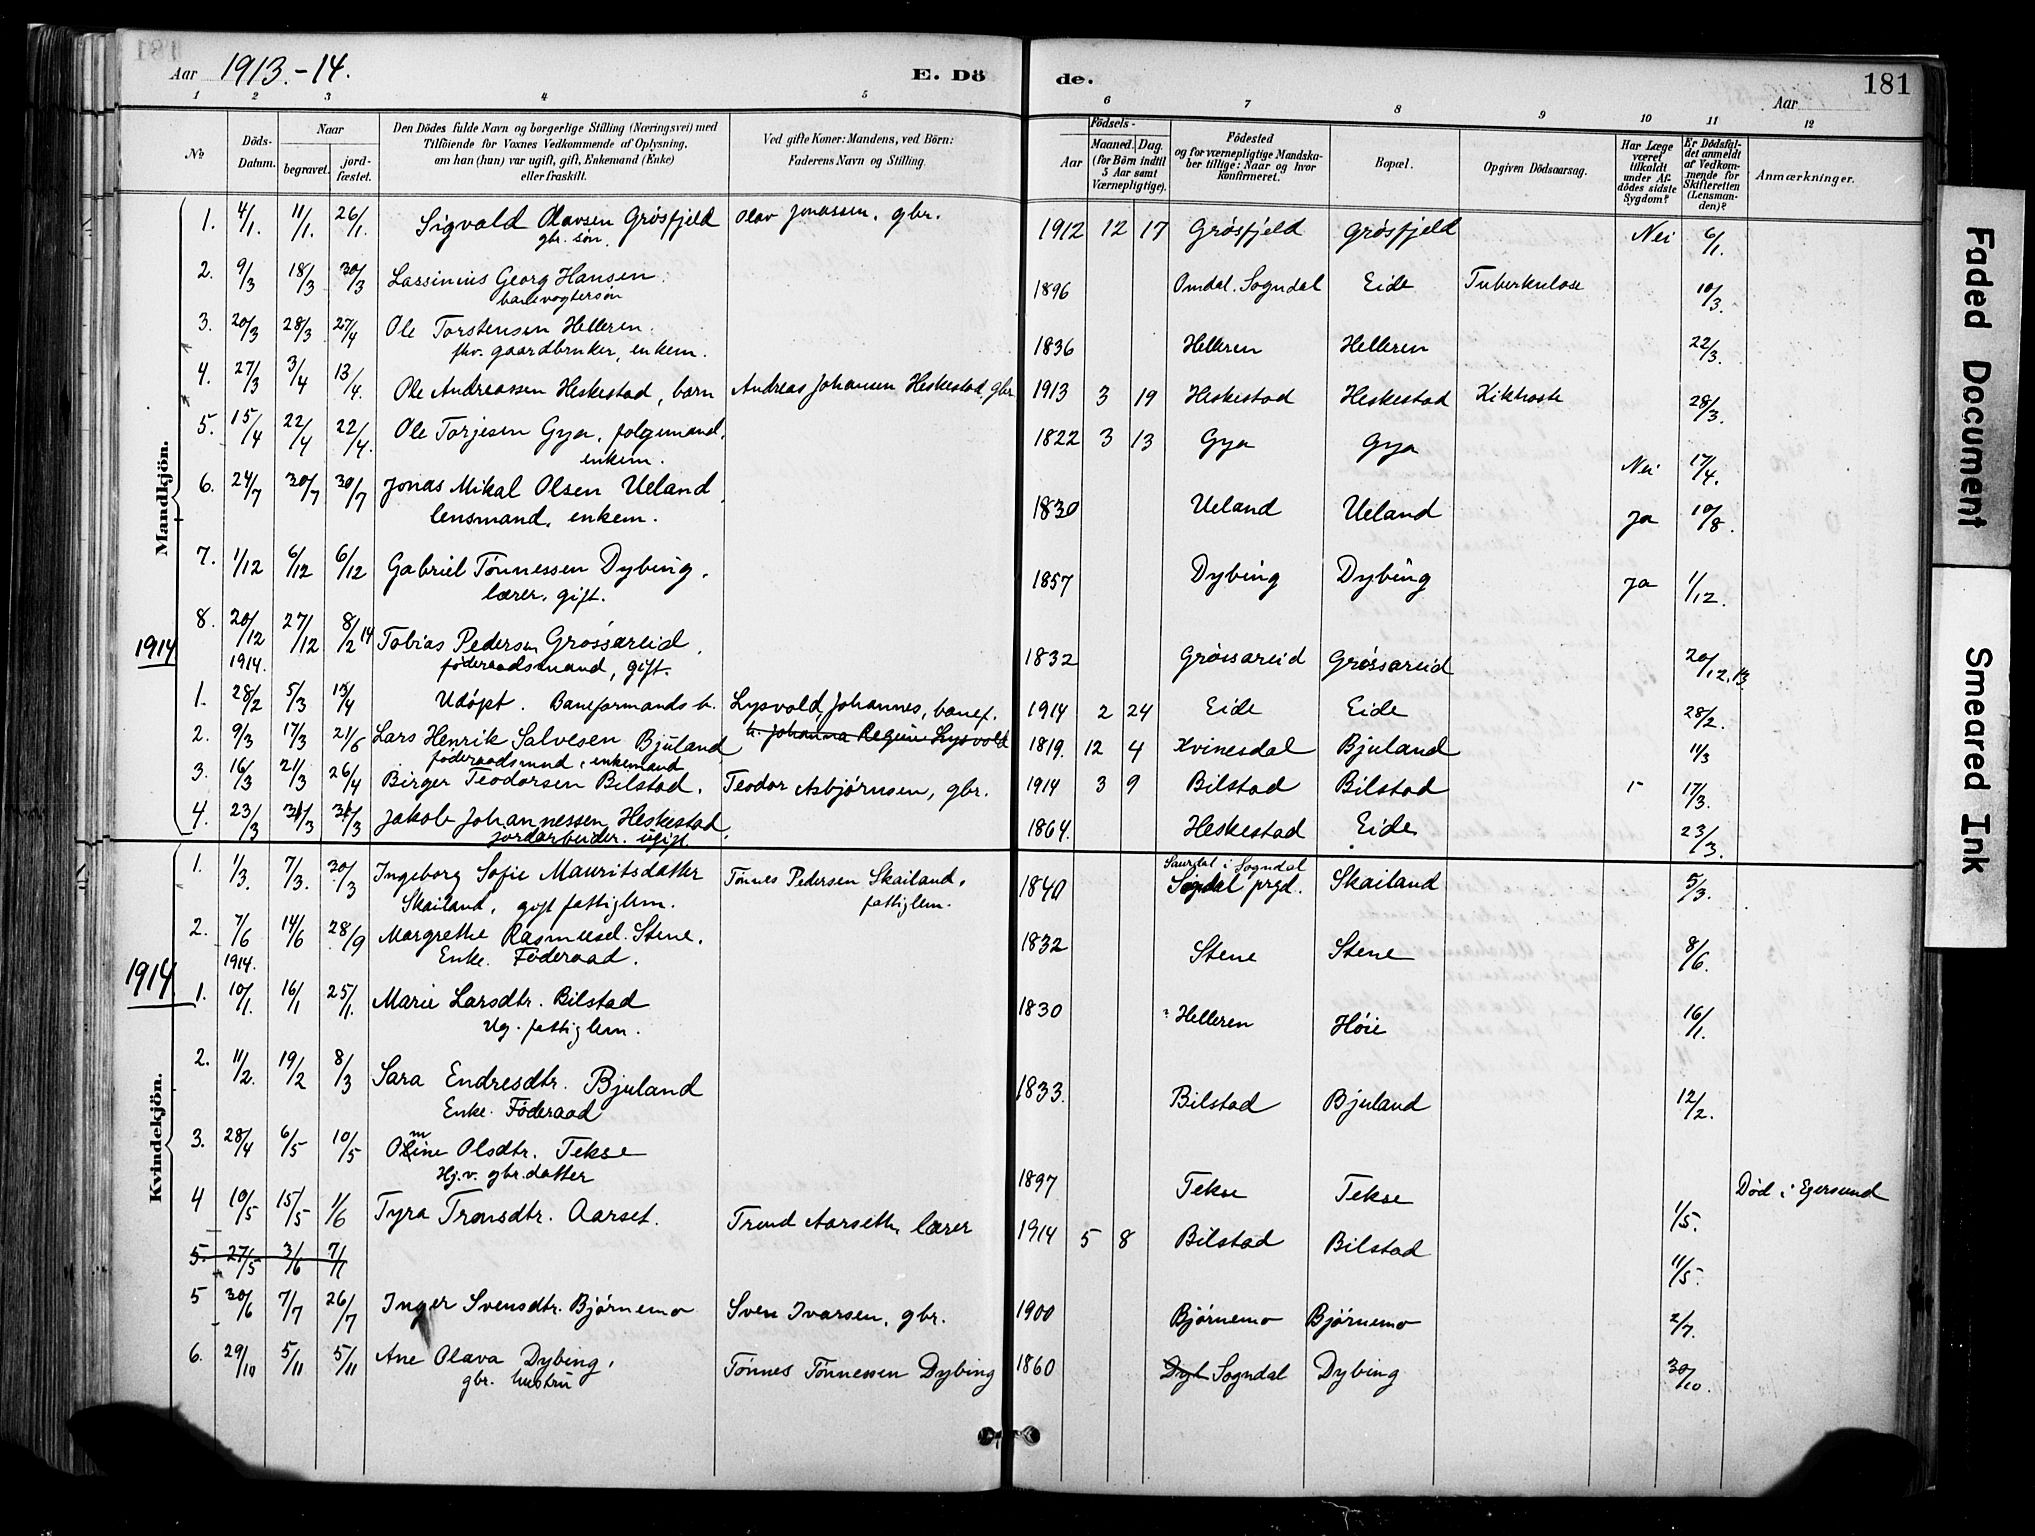 181
Aar 1913.-14.
E. Dö de.
181
Aar
1 2 3 4 5 6 7 8 9 10 11 12
No
Döds-Datum.
Naar
begravet.
jordfæstet.
Den Dödes fulde Navn og borgerlige Stilling (Næringsvei) med
Tilföiende for Voxnes Vedkommende af Oplysning,
om han (hun) var ugift, gift, Enkemand (Enke)
eller fraskilt.
Ved gifte Koner: Mandens, ved Börn:
Faderens Navn og Stilling.
Födsels-
Aar
Maaned. Dag.
(for Börn indtil
5 Aar samt
Værnepligtige).
Födested
og for værnepligtige Mandska-
ber tillige: Naar og hvor
konfirmeret.
Bopæl.
Opgiven Dödsaarsag.
Har Læge
været
tilkaldt
under Af-
dödes sidste
Sygdom?
Er Dödsfal-
det anmeldt
af Vedkom-
mende for
Skifteretten
(Lensman-
den)?
Anmærkninger.
Mandkjön.
1. 4/1. 11/1. 26/1. Sigvald Olavsen Grøsfjeld Olav Jonassen, gbr. 1912 12 17 Grøsfjeld Grøsfjeld Nei 6/1.
gbr. søn.
2. 9/3 18/3 30/3 Lassinius Georg Hansen. 1896 Omdal. Sogndal Eide Tuberkulose 10/3.
banevogtersøn
3. 20/3 28/3 27/4 Ole Torstensen Helleren. 1836 Helleren Helleren 22/3.
fhv. gaardbruker, enkem.
4. 27/3 3/4 13/4. Ole Andreassen Heskestad, barn Andreas Johansen Heskestad, gbr. 1913 3 19 Heskestad Heskestad Kikhoste 28/3.
5. 15/4 22/4 22/4. Ole Torjesen Gya, folgemand, 1822 3 13 Gya Gya Nei 17/4.
enkem.
6. 24/7 30/7 30/7 Jonas Mikal Olsen Ueland 1830 Ueland Ueland Ja 10/8.
lensmand, enkem.
7. 1/12 6/12 6/12 Gabriel Tønnessen Dybing, 1857 Dybing Dybing Ja 1/12.
lærer, gift.
8. 20/12 27/12 8/2 14 Tobias Pedersen Grøssareid, 1832 Grøssareid Grøssareid 20/12.13.
føderaadsmand, gift.
1914
1914.
1. 28/2 5/3 13/4 Udøpt. Baneformands b. Lysvold, Johannes, banef. 1914 2 24 Eide Eide 28/2.
h. Johanna Regine Lysvold
2. 9/3 17/3 21/6 Lars Henrik Salvesen Bjuland 1819. 12 4 Kvinesdal Bjuland 11/3
føderaadsmnd, enkemand
3. 16/3 21/3 26/4 Birger Teodorsen Bilstad. Teodor Asbjørnsen, gbr. 1914 3 9 Bilstad Bilstad 17/3.
4. 23/3 31/3 31/3 Jakob Johannessen Heskestad. 1864. Heskestad Eide 23/3.
jordarbeider. ugift.
Kvindekjön.
1. 1/3. 7/3. 30/3 Ingeborg Sofie Mauritsdatter Tønnes Pedersen Skailand, 1840 Sogndal prgd. Skailand 5/3.
Skailand, gift fattiglem. fattiglem.
2. 7/6 14/6 28/9 Margrethe Rasmusd. Stene, 1832 Stene Stene 8/6.
Enke. Føderaad.
1914
1914.
1. 10/1. 16/1 25/1. Marie Larsdtr. Bilstad 1830 Helleren Høie 16/1.
Ug. fattiglem.
2. 11/2. 19/2 8/3 Sara Endresdtr. Bjuland 1833. Bilstad Bjuland 12/2.
Enke. Føderaad
3. 28/4 6/5 10/5 Omine Olsdtr. Tekse 1897 Tekse Tekse 1/5. Død i Egersund
Hj.v. gbr.datter
4 10/5 15/5 1/6 Tyra Tronsdtr. Aarset. Trond Aarseth, lærer 1914 5 8 Bilstad Bilstad 11/5.
5. 27/5 3/6 7/1
5 30/6 7/7 26/7 Inger Svensdtr. Bjørnemo Sven Ivarsen, gbr. 1900 Bjørnemo Bjørnemo 2/7.
6. 29/10 5/11 5/11 Ane Olava Dybing, Tønnes Tønnessen Dybing 1860 Dyb Sogndal Dybing 30/10.
gbr. hustru
Faded Document
Smeared Ink